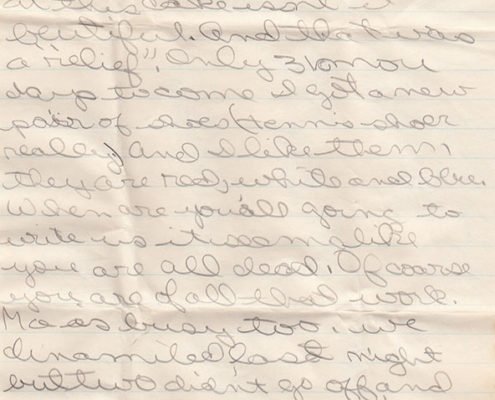 at this lake isn't it
beautiful. And that was
a relief". Only 3 more
days to come I got a new
pair of shoes (tennis shoes
really) and I like them,
they are red, white and blue.
When are you'all going to
write us it seems like
you are all dead. Of coarse
you are of all that work.
Ma as busy too, we
dinamited last night
but two didn't go off, and